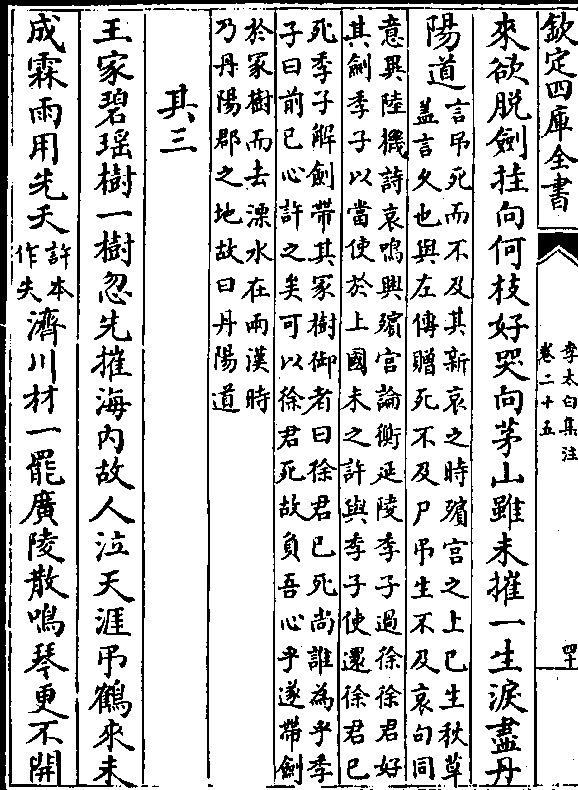 欽定四庫全書
李太白集注
卷二十五
四十
來欲脫劍挂向何枝好哭向茅山雖未摧一生淚盡丹
陽道
言吊死而不及其新哀之時殯宫之上已生秋草
蓋言久也與左傳贈死不及尸吊生不及哀句同
意異陸機詩哀鳴興殯宫論衡延陵季子過徐徐君好
其劍季子以當使於上國未之許與季子使還徐君已
死季子解劍帶其冢樹御者曰徐君已死尚誰為乎季
子曰前已心許之矣可以徐君死故負吾心乎遂帶劍
於冢樹而去溧水在兩漢時
乃丹陽郡之地故曰丹陽道
其三
王家碧瑶樹一樹忽先摧海内故人泣天涯吊鶴來未
成霖雨用先夭許本作失濟川材一罷廣陵散鳴琴更不開